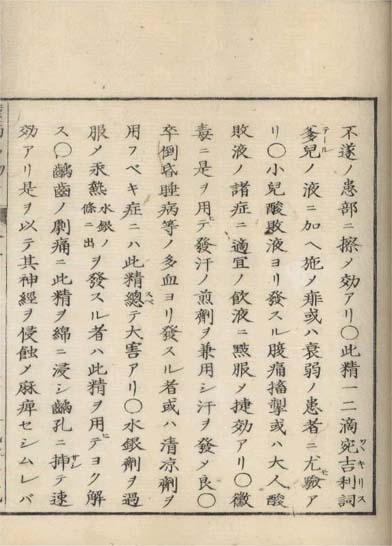 不遂ノ患部ニ擦メ効アリ〇此精一二滴宛吉利詞
爹兒ノ液ニ加ヘ施メ痱或ハ衰弱ノ患者ニ尤驗ア
リ〇小兒酸敗液ヨリ發スル腹痛搐掣或ハ大人酸
敗液ノ諸症ニ適宜ノ飲液ニ㸃服メ捷効アリ〇黴
毒ニ是ヲ用テ發汗ノ煎劑ヲ兼用シ汗ヲ發メ良〇
卒倒昏睡病等ノ多血ヨリ發スル者或ハ清凉劑ヲ
用フベキ症ニハ此精總テ大害アリ〇水銀劑ヲ過
服メ汞熱水銀ノ條ニ出ヲ發スル者ハ此精ヲ用テヨク解
ス〇齲齒ノ劇痛ニ此精ヲ綿ニ浸シ齲孔ニ挿テ速
効アリ是ヲ以テ其神經ヲ侵蝕メ麻痺セシムレバ